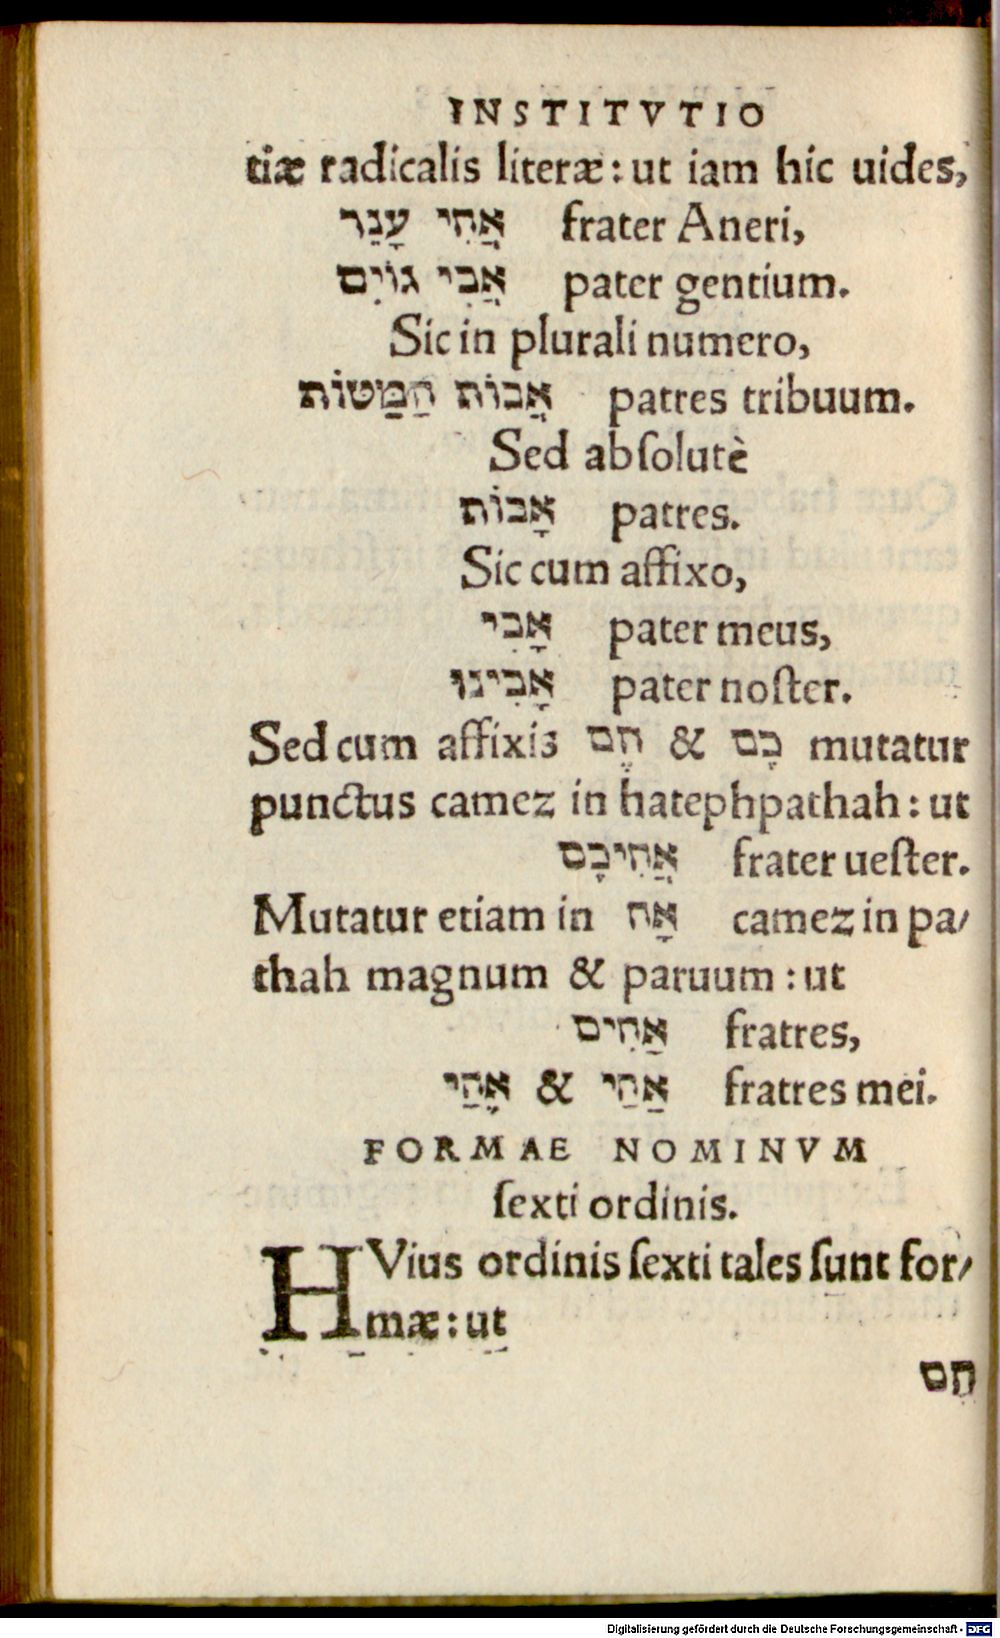 INSTITVTIO
tiæ radicalis literæ: ut iam hic uides,
אֲחִי עָנֵר frater Aneri,
אֲבִי גוֹיִם pater gentium.
Sic in plurali numero,
אֲבוֹת הַמַּטּוֹת patres tribuum.
Sed abſolutè
אָבוֹת patres.
Sic cum affixo,
אָבִי pater meus,
אָבִינוּ pater noſter.
Sed cum affixis הֶם & כָם mutatur
punctus camez in hatephpathah: ut
אֲחִיכָם frater ueſter.
Mutatur etiam in אָח camez in pa/
thah magnum & paruum: ut
אַחִים fratres,
אַחַי & אֶחַי fratres mei.
FORMAE NOMINVM
ſexti ordinis.
HVius ordinis ſexti tales ſunt for/
mæ: ut
חֵם
Digitalisierung gefördert durch die Deutsche Forschungsgemeinschaft - DFG